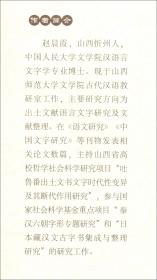 作者简介
赵晨霞，山西忻州人，
中国人民大学文学院汉语言
文字学专业博士。现于山西
师范大学文学院古代汉语教
研室工作，主要研究方向为
出土文献语言文字研究及文
献整理。在《语文研究》《中
国文字研究》等刊物发表相
关论文数篇，主持山西省高
校哲学社会科学研究项目“吐
鲁番出土文书文字时代性变异
及其断代作用研究”，参与国
家社会科学基金重点项目“秦
汉六朝字形专题研究”和“日
本藏汉文古字书集成与整理
研究”的研究工作。